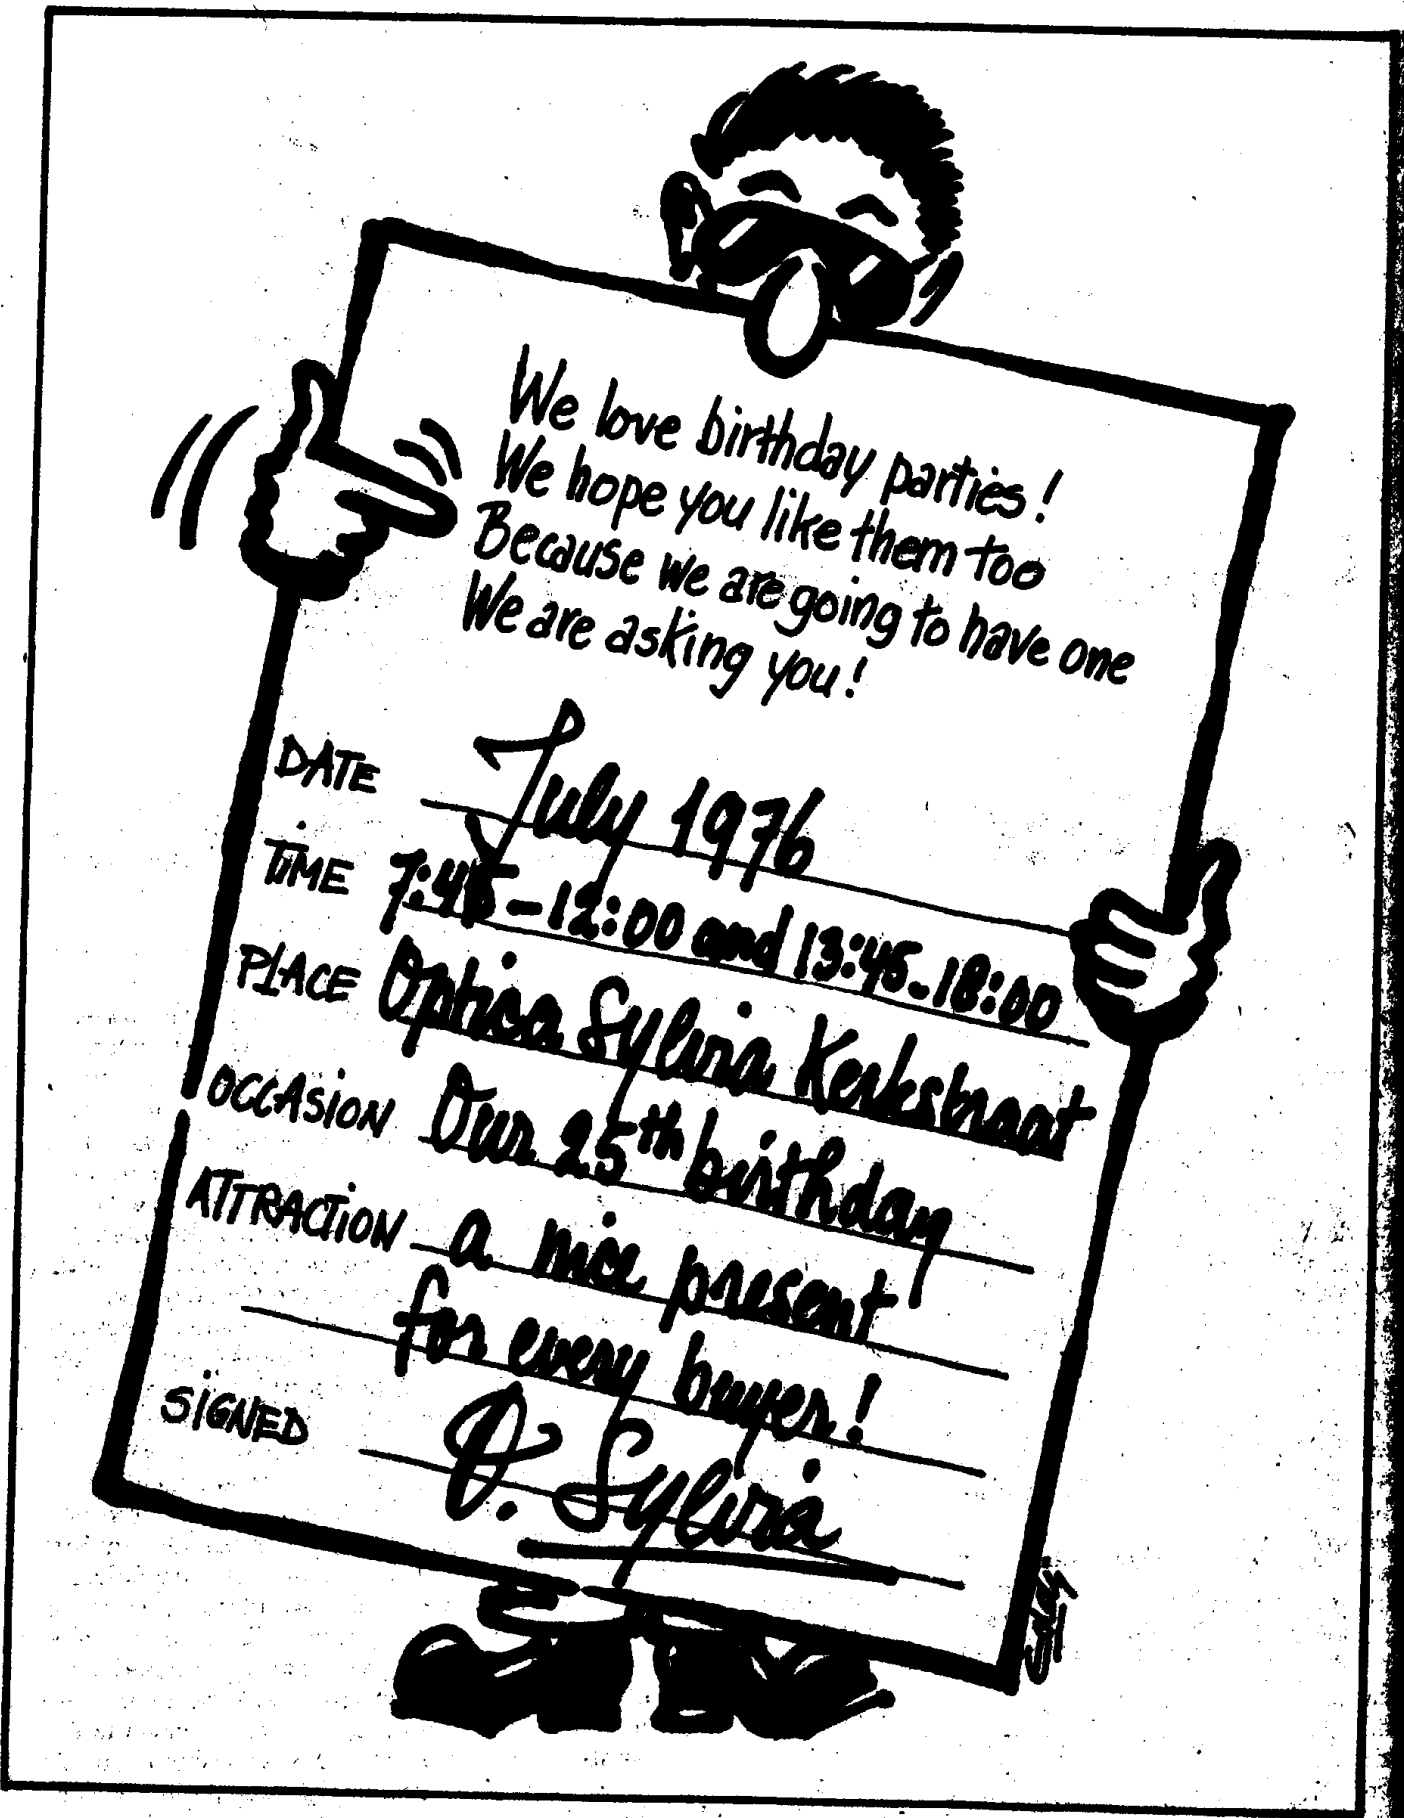 We love birthday parties!
We hope you like them too
Because we are going to have one
We are asking you!
DATE July 1976
TIME 7:45-12:00 and 13:45-18:00
PLACE Optica Sylvia Kerkstraat
OCCASION Our 25th birthday
ATTRACTION a nice present
for every buyer!
SIGNED O. Sylvia